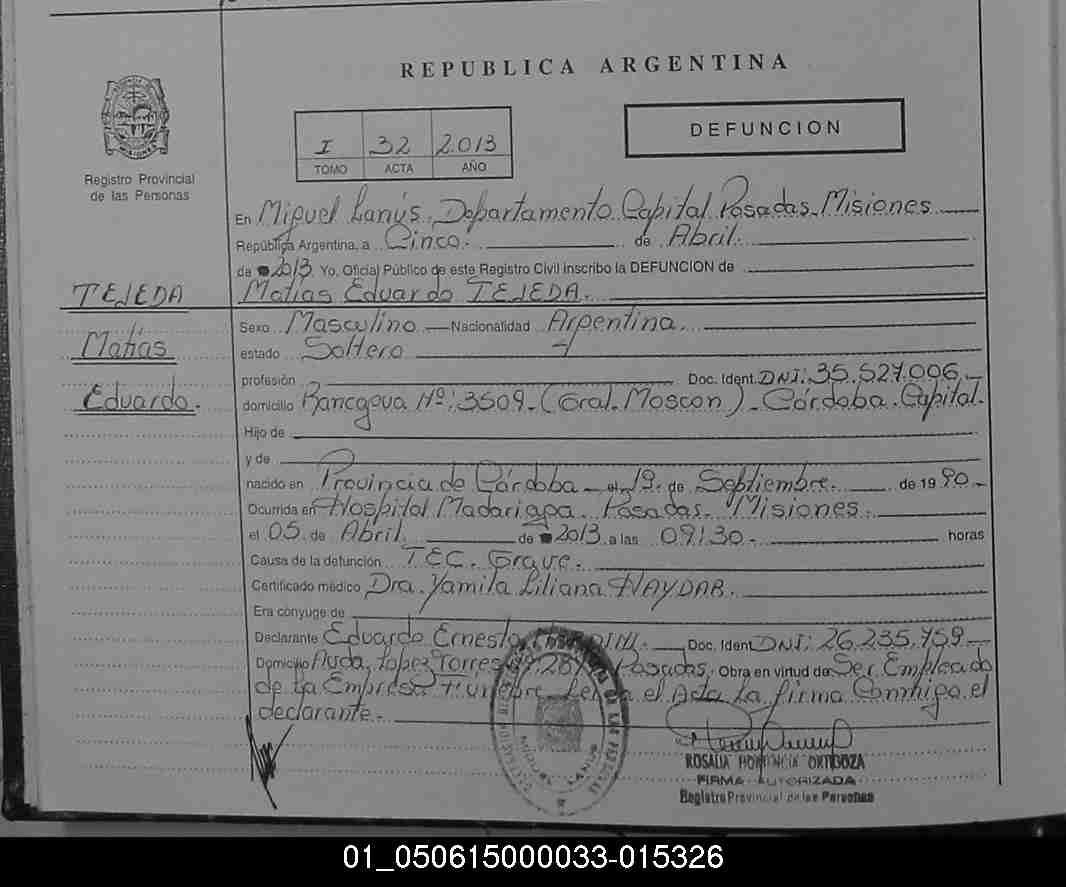 REPUBLICA ARGENTINA
DEFUNCION
I 32 2.013
TOMO ACTA AÑO
Registro Provincial
de las Personas
En Miguel Lanús. Departamento Capital Posadas. Misiones
República Argentina, a Cinco. de Abril.
de 2013. Yo, Oficial Público de este Registro Civil inscribo la DEFUNCION de
TEJEDA Matías Eduardo TEJEDA.
Sexo Masculino Nacionalidad Argentina.
Matías
estado Soltero
profesión Doc. Ident. DNI: 35.527.006.
Eduardo. domicilio Nº: 3509 - (Gral. Moscon) - Córdoba. Capital.
Hijo de
y de
nacido en Provincia de Córdoba el 19. de Septiembre. de 19 90
Ocurrida en Hospital Madariaga. Posadas. Misiones.
el 05 de Abril. de 2013 a las 09:30 horas
Causa de la defunción TEC. Grave.
Certificado médico Dra. Yamila Liliana HAYDAR.
Era cónyuge de
Declarante Eduardo Ernesto Doc. Ident. DNI: 26.235.759
Domicilio Avda. López Torres Posadas. Obra en virtud de Ser Empleado
de la Empresa Fúnebre el Acta la firma Conmigo el
declarante.
ROSALIA HORTENCIA ORTIGOZA
FIRMA AUTORIZADA
Registro Provincial de las Personas
01_050615000033-015326